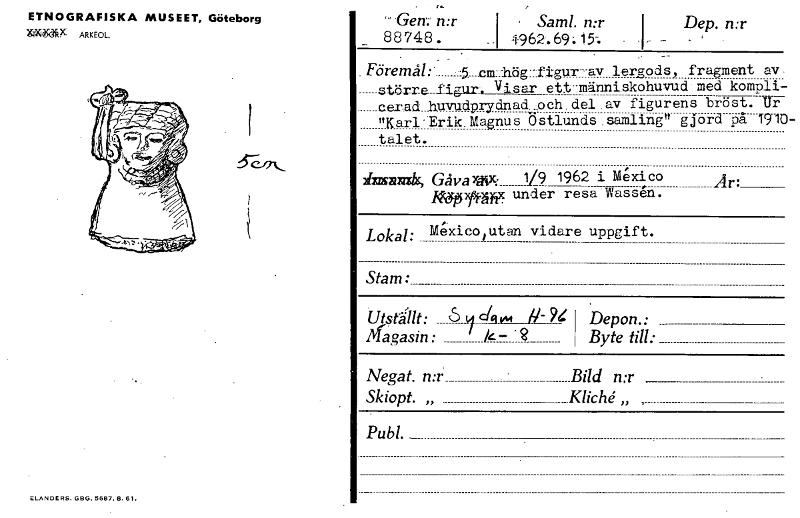 ETNOGRAFISKA MUSEET, Göteborg
ARKEOL.
5cm
ELANDERS. GBG. 5687. 8. 61.
Gen. n:r Saml. n:r Dep. n:r
88748. 1962.69.15.
Föremål: 5 cm hög figur av lergods, fragment av
större figur. Visar ett människohuvud med kompli-
cerad huvudprydnad och del av figurens bröst. Ur
"Karl Erik Magnus Östlunds samling" gjord på 1910-
talet.
Insamk, Gåva av: 1/9 1962 i México År:
Köp från: under resa Wassén.
Lokal: México,utan vidare uppgift.
Stam:
Utställt: Sydam H-96 Depon.:
Magasin: K-8 Byte till:
Negat. n:r Bild n:r
Skiopt. „ Kliché „
Publ.